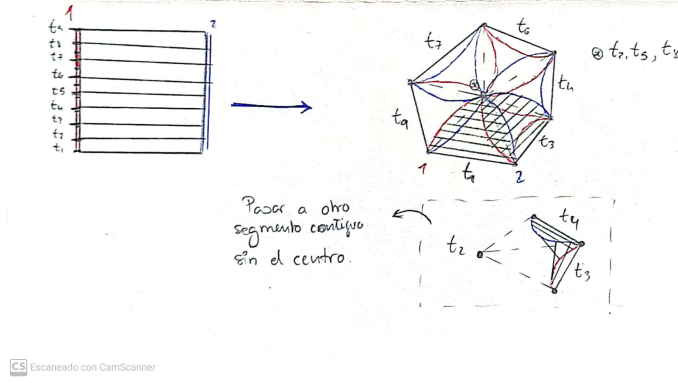 1
2
t₉
t₈
t₇
t₆
t₅
t₄
t₃
t₂
t₁
t₆
t₇
t₄
t₉
t₃
1
2
⊛ t₂, t₅, t₈
Pasar a otro
segmento contiguo
sin el centro.
t₄
t₂
t₃
CS Escaneado con CamScanner